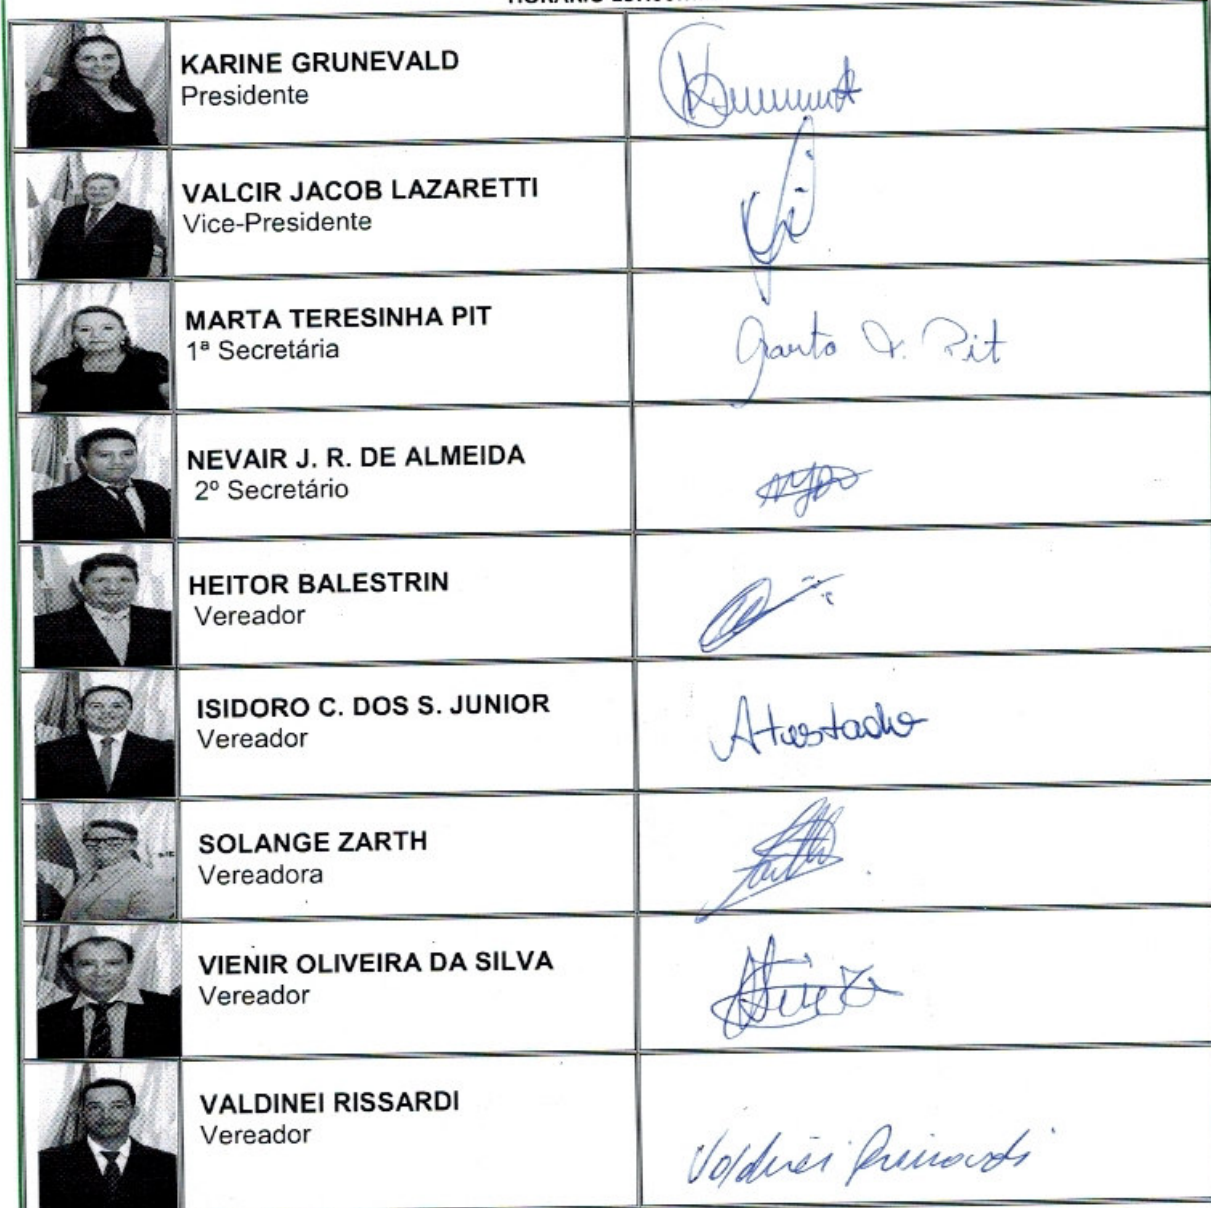 KARINE GRUNEVALD
Presidente
VALCIR JACOB LAZARETTI
Vice-Presidente
MARTA TERESINHA PIT
1ª Secretária
Marta T. Pit
NEVAIR J. R. DE ALMEIDA
2º Secretário
HEITOR BALESTRIN
Vereador
ISIDORO C. DOS S. JUNIOR
Vereador
Atestado
SOLANGE ZARTH
Vereadora
VIENIR OLIVEIRA DA SILVA
Vereador
VALDINEI RISSARDI
Vereador
Valdinei Rissardi